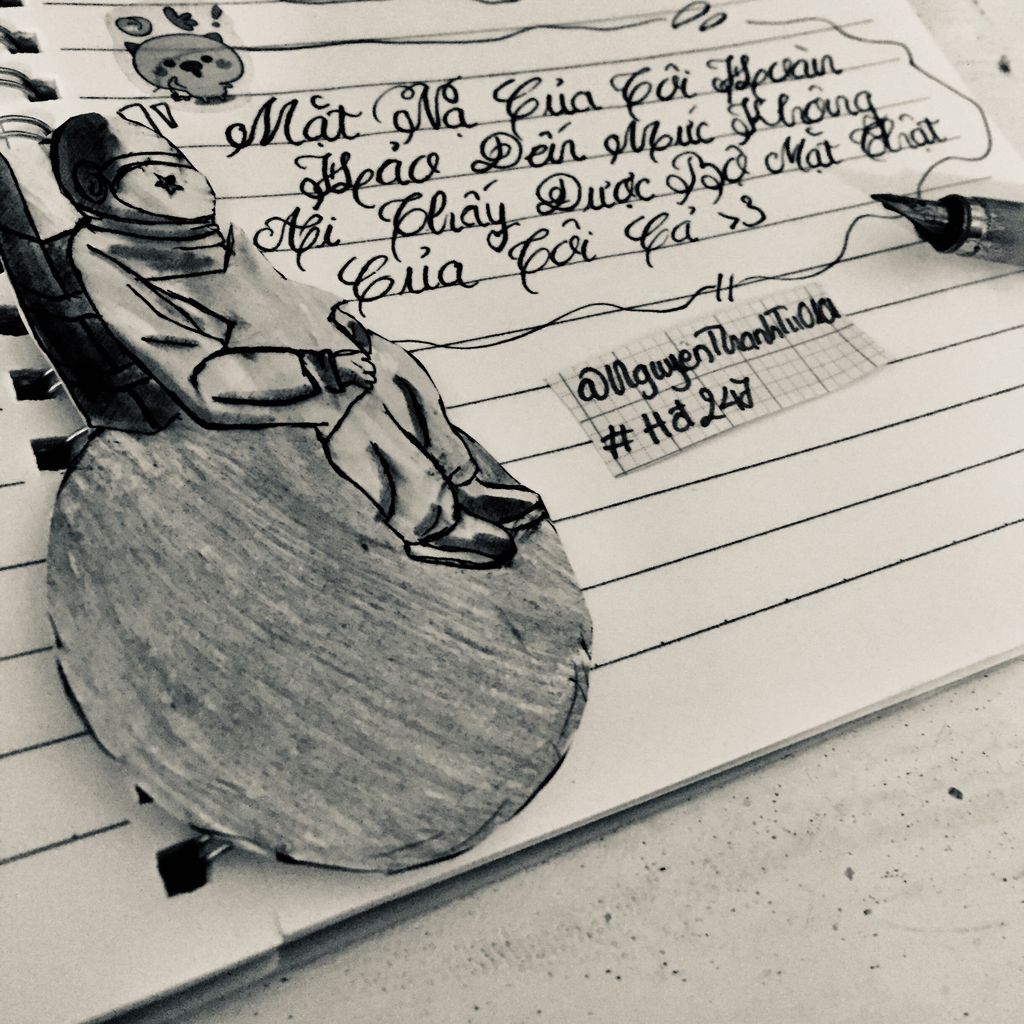 Mặt Nạ Của Tôi Hoàn
Hảo Đến Mức Không
Ai Thấy Được Bộ Mặt Thật
Của Tôi Cả >3
@NguyenThanhTu01a
# Hđ 247